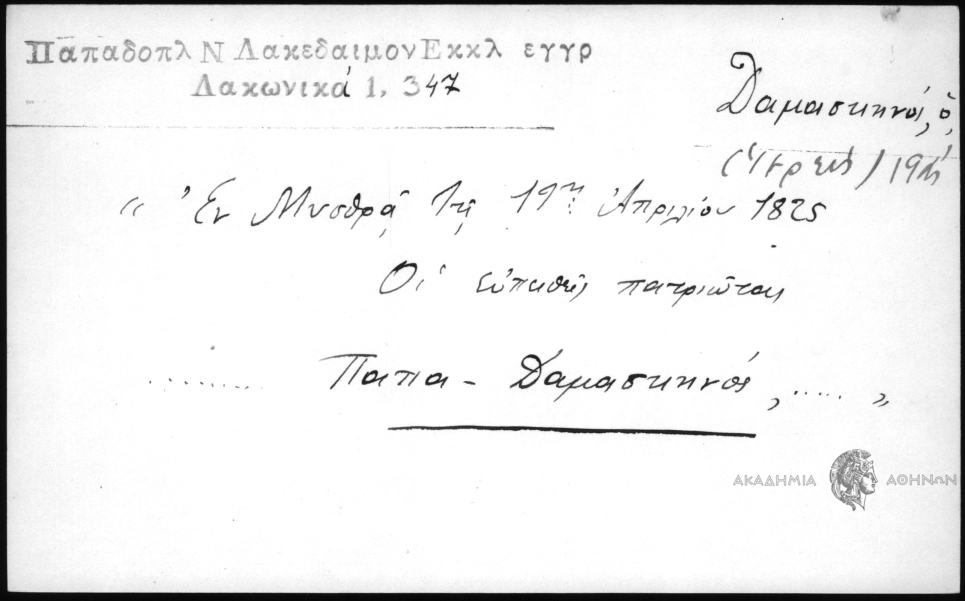 Παπαδοπλ Ν Λακεδαιμον Εκκλ εγγρ
Λακωνικά 1, 347
Δαμασκηνός, ὁ,
(ἱερεὺς)
“ Ἐν Μυσθρᾷ τῇ 19ῃ Ἀπριλίου 1825
Οἱ εὐπειθεῖς πατριῶται
........ Παπα - Δαμασκηνός, ..... „
ΑΚΑΔΗΜΙΑ ΑΘΗΝΩΝ